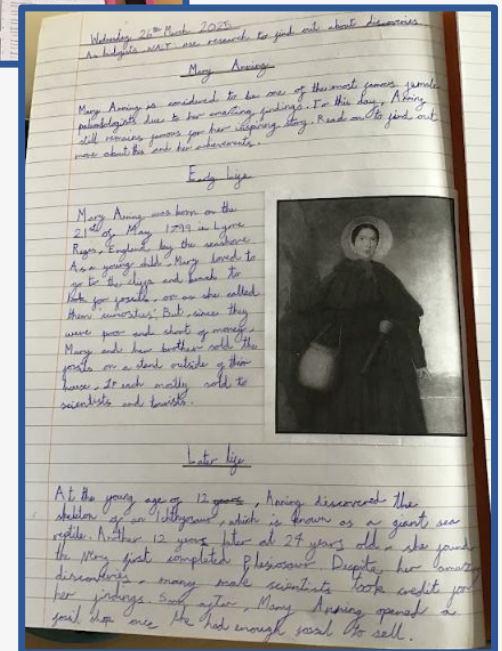 Wednesday 26th March 2025
As historians, WALT: use research to find out about discoveries.
Mary Anning
Mary Anning is considered to be one of the most famous female
paleontologists due to her amazing findings. To this day, Anning
still remains famous for her inspiring story. Read on to find out
more about this and her achievements.
Early life
Mary Anning was born on the
21st of May 1799 in Lyme
Regis, England by the seashore.
As a young child, Mary loved to
go to the cliffs and beach to
look for fossils, or as she called
them 'curiosities'. But, since they
were poor and short of money,
Mary and her brother sold the
fossils on a stand outside of their
house. It each mostly sold to
scientists and tourists.
Later life
At the young age of 12 years, Anning discovered the
skeleton of an Ichthyosaur, which is known as a giant sea
reptile. Another 12 years later at 24 years old, she found
the very first completed Plesiosaur. Despite her amazing
discoveries, many male scientists took credit for
her findings. Soon after, Mary Anning opened a
fossil shop once she had enough fossil to sell.